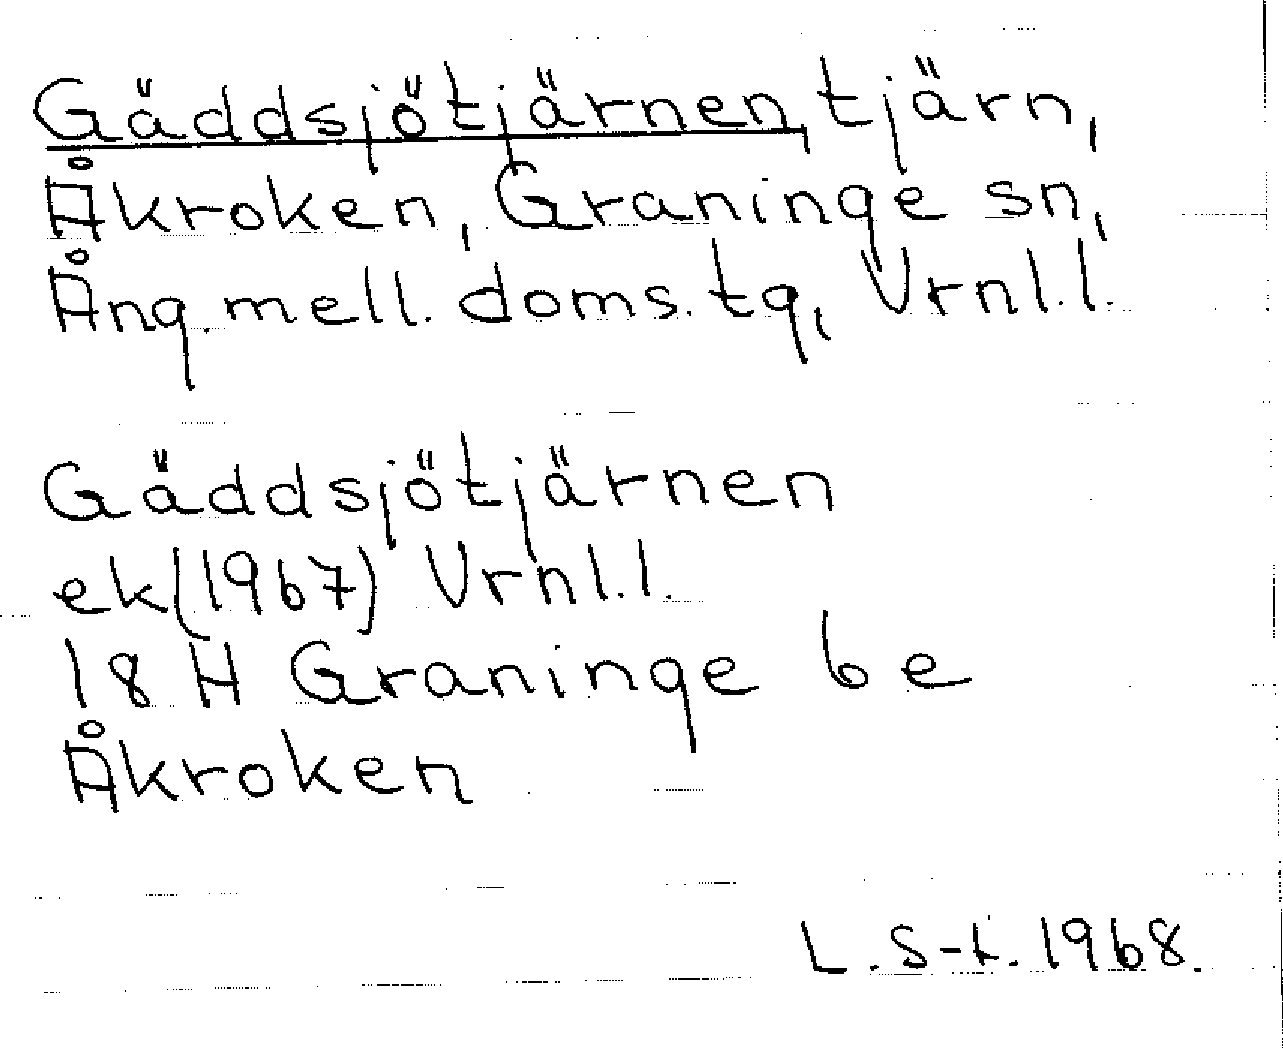 Gäddsjötjärnen, tjärn,
Åkroken, Graninge sn,
Ång. mell. doms. tg, Vrnl.l.
Gäddsjötjärnen
ek(1967) Vrnl.l.
18 H Graninge 6 e
Åkroken
L. S-t. 1968.